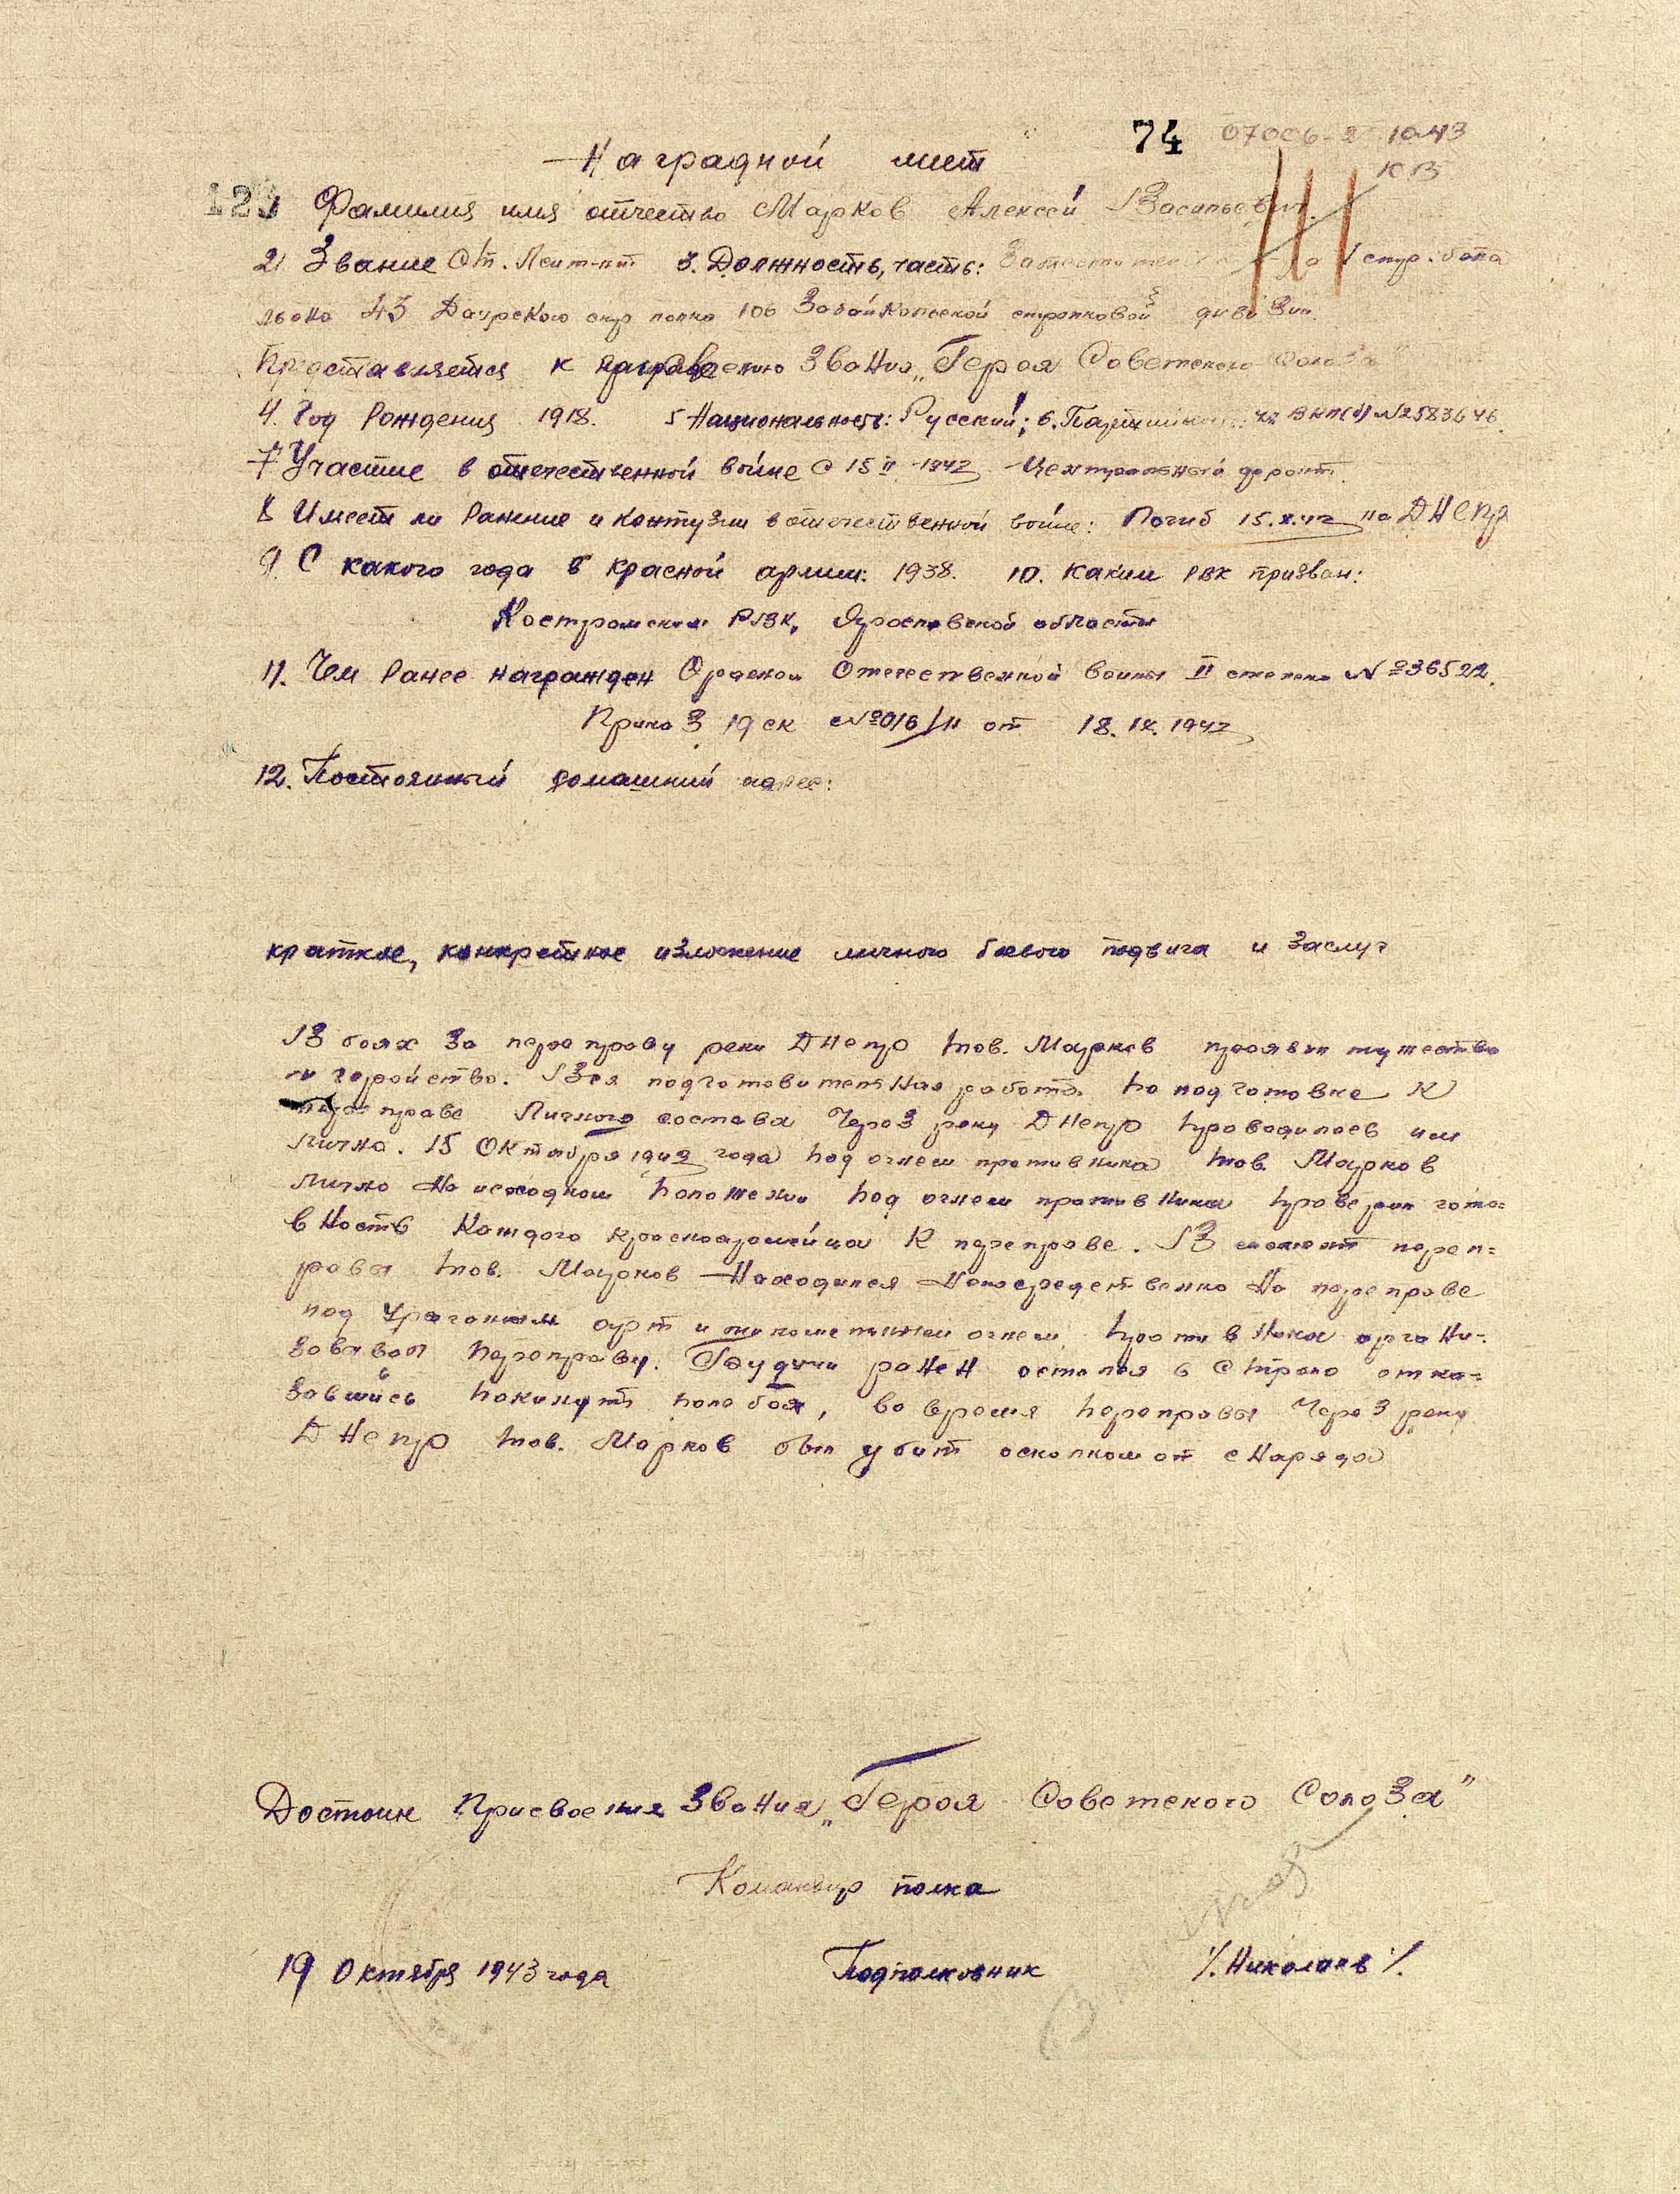 74 07006-2 10.43
Наградной лист
КВ
123 Фамилия имя отчество Марков Алексей Васильевич.
2. Звание Ст. Лейт-нт 3. Должность, часть: 1 стр. бата
льона 43 Даурского стр полка 106 Забайкальской стрелковой дивизии.
Представляется к званию „Героя Советского Союза
4. Год Рождения 1918. 5 Национальность: Русский; 6. Партийность: чл ВКП(б) №2583646.
7 Участие в отечественной войне С 15 II 1942 Центральный фронт.
8 Имеет ли Ранение и контузии в отечественной войне: Погиб 15.X.43 на Днепр
9. С какого года в красной армии: 1938. 10. Каким РВК призван:
Костромским РВК, Ярославской области
11. Чем Ранее награжден Орденом Отечественной войны II степени №36522.
Приказ 19 ск №016/н от 18.IX.1943
12. Постоянный домашний адрес:
краткое, конкретное изложение личного боевого подвига и заслуг
В боях за переправу реки Днепр тов. Марков проявил мужество
и геройство. Вся подготовительная работа по подготовке к
переправе Личного состава Через реку Днепр проводилась им
лично. 15 Октября 1943 года под огнем противника тов. Марков
лично На исходном положении под огнем противника проверил гото=
вность Каждого красноармейца К переправе. В момент переп=
равы тов. Марков Находился Непосредственно На переправе
под ураганным арт и минометным огнем противника органи-
зовывал переправу. Будучи ранен остался в строю отка=
завшись покинуть поле боя, во время переправы Через реку
Днепр тов. Марков был убит осколком от снаряда
Достоин Присвоения Звания „Героя Советского Союза"
Командир полка
19 Октября 1943 года Подполковник /. Николаев /.